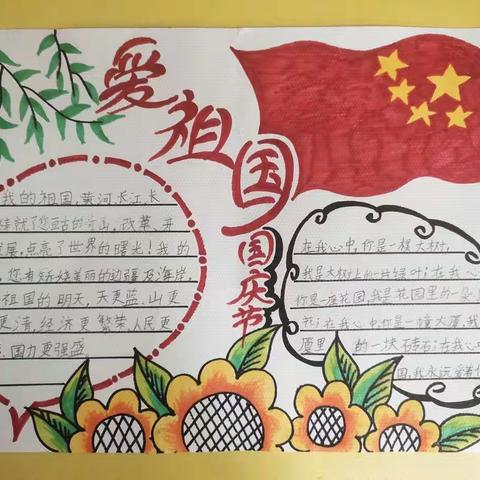 爱祖国
国庆节
我的祖国,黄河长江长
就了您
改革、开
展,点亮了世界的曙光!我的
,您有妖娆美丽的边疆及海岸,
祖国的明天,天更蓝、山更
更清,经济更繁荣,人民更
、国力更强盛
在我心中,你是一棵大树,
我是大树上的一片绿叶;在我心
你是一座花园,我是花园里的一朵
花;在我心中,你是一幢大厦,我
厦里 的一块砖石;在我心
国,我永远爱